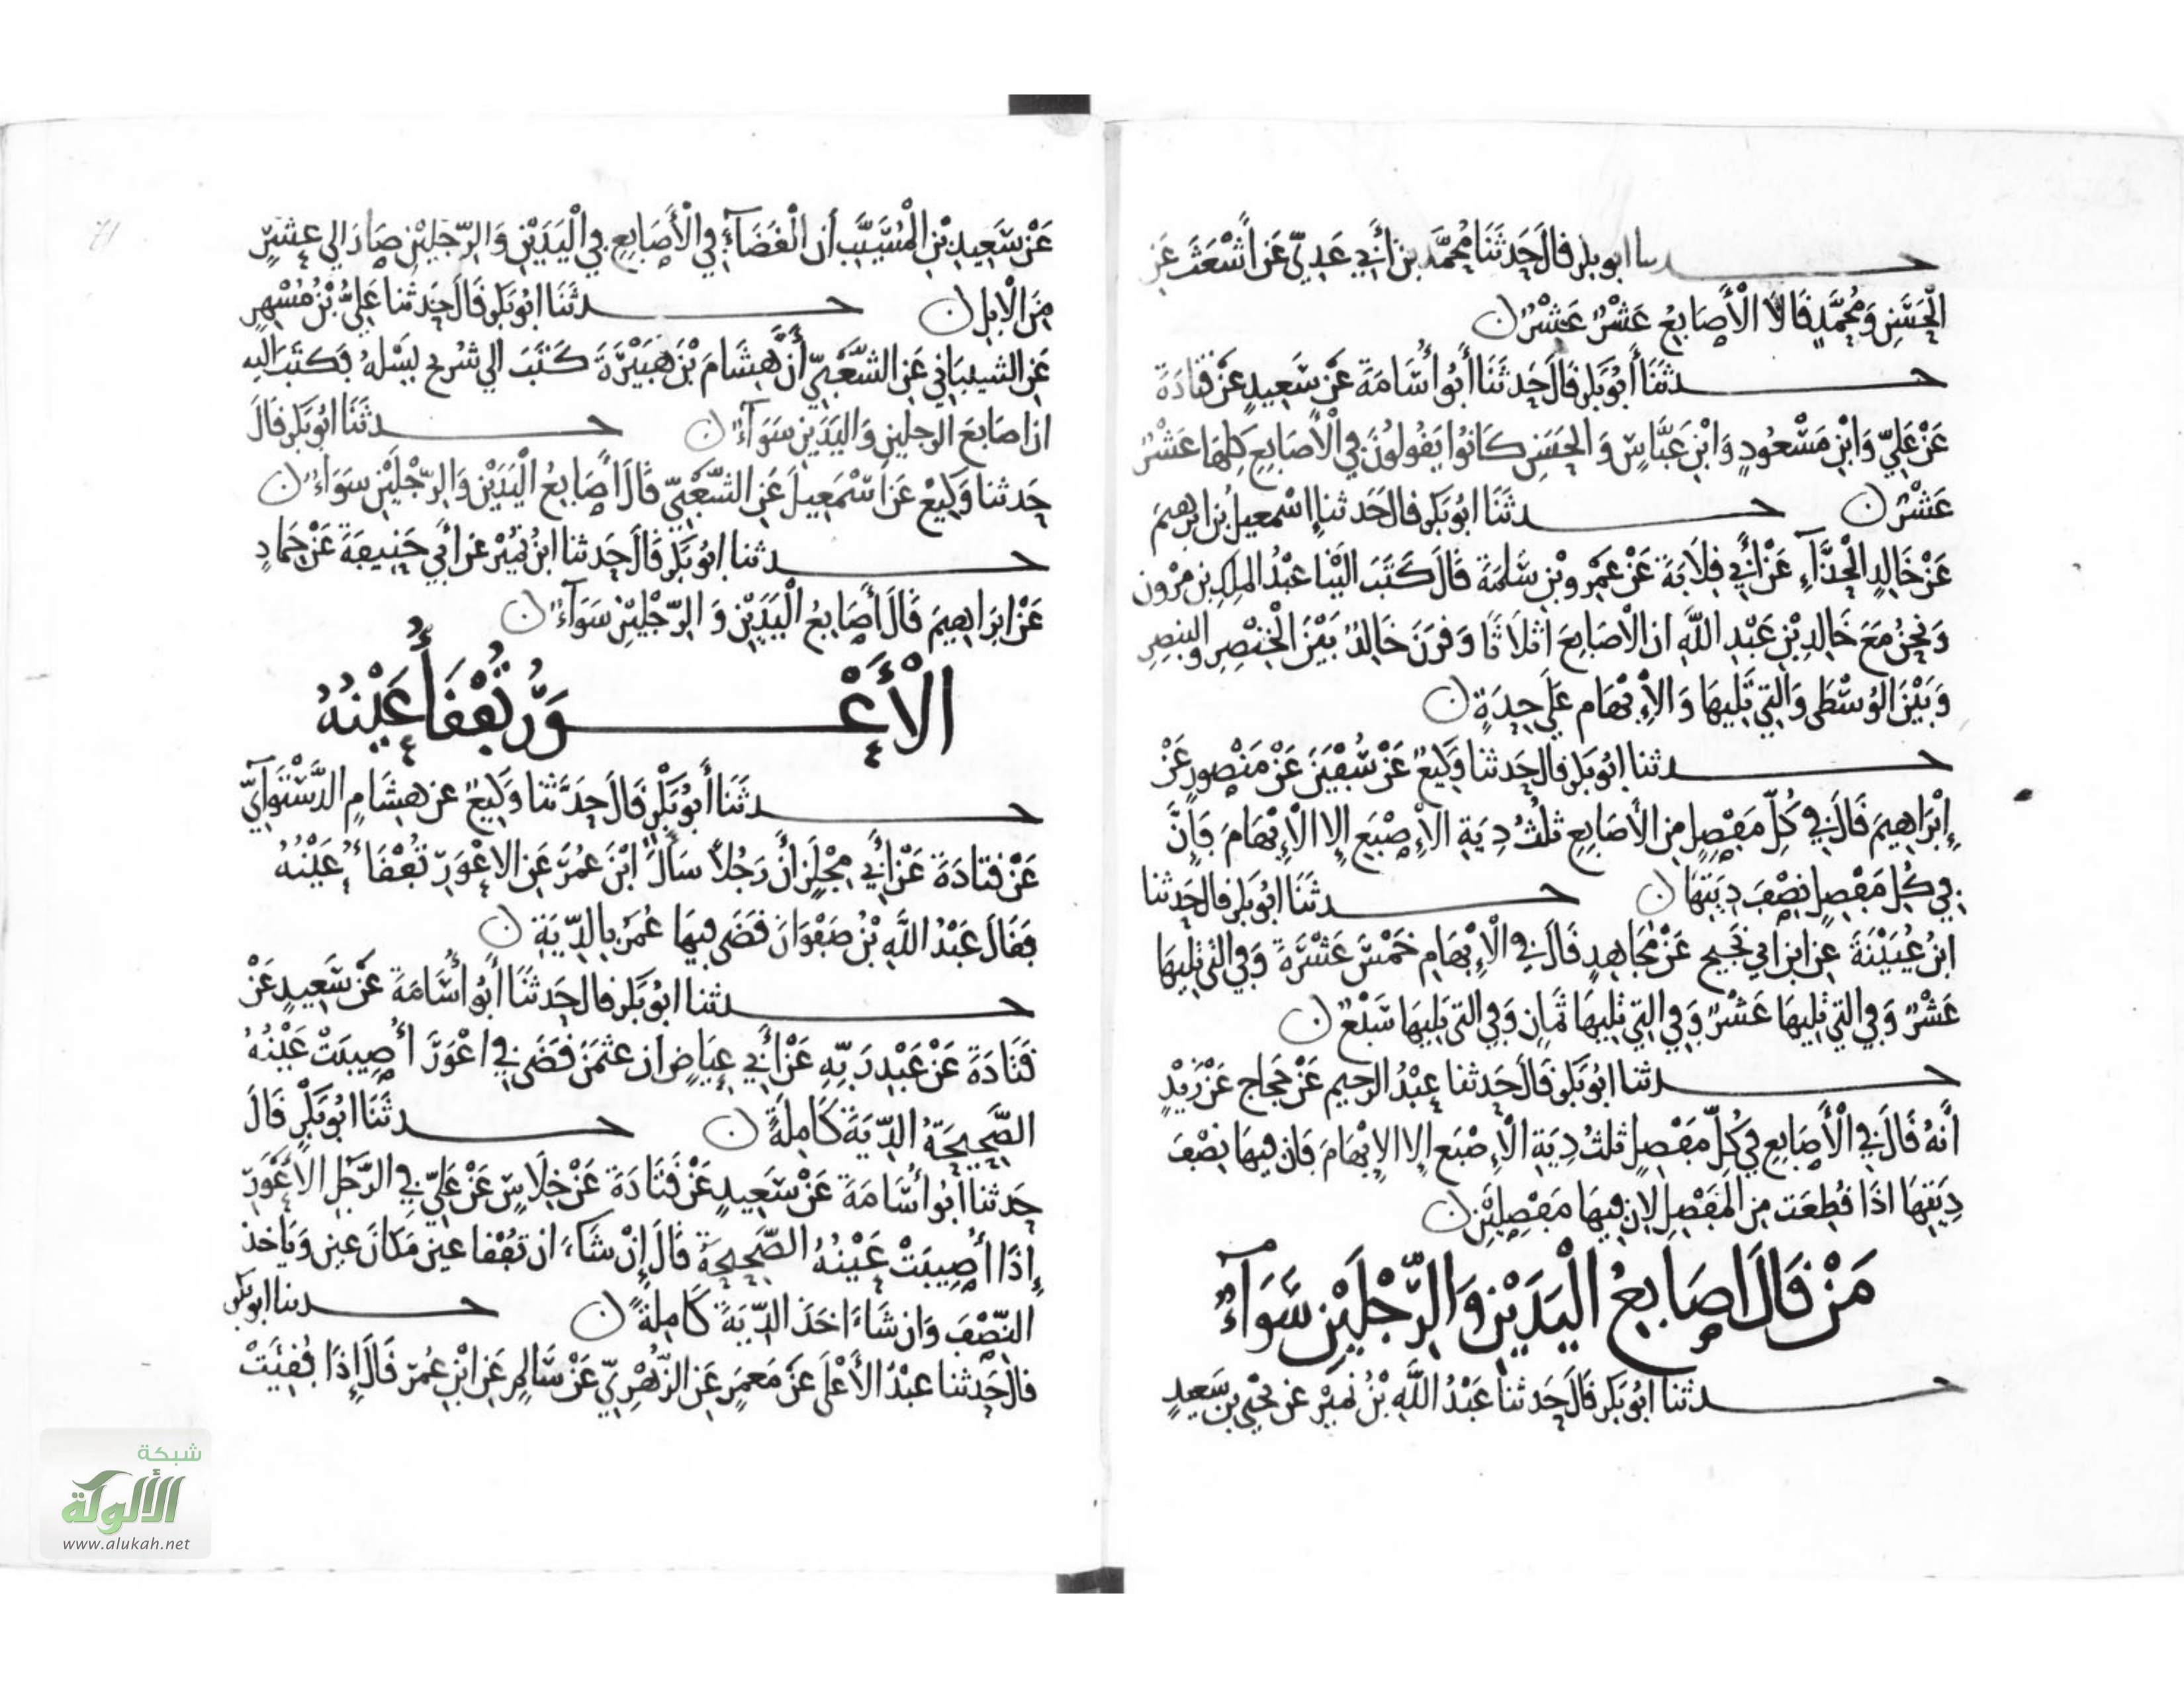 حدثنا ابو بكر قالَ حَدثَنَا مُحَمَّد بن أَبِي عَدِيّ عَن أَشْعَثَ عَن
الْحَسَنِ وَمُحَمَّدٍ قَالَا الْأَصَابِعُ عَشْرٌ عَشْرٌ ن
حدثَنَا أَبُو بَكر قالَ حَدثَنَا أَبُو أُسَامَةَ عَنْ سَعِيدٍ عَنْ قَتَادَةَ
عَنْ عَلِيّ وَابْنِ مَسْعُودٍ وَابْنِ عَبَّاسٍ وَالحَسَنِ كَانُوا يَقُولُونَ فِي الْأَصَابِعِ كلهَا عَشْرٌ
عَشْرٌ ن حدثَنَا ابُو بَكر قال حَدثنا إِسْمعيل بن ابرهيمَ
عَنْ خَالِدٍ الْحَذَّآءِ عَنْ أَبِي قِلَابَةَ عَنْ عَمْرِو بْنِ سَلَمَةَ قَالَ كَتَبَ الَيْنَا عَبْدُ المَلِكِ بن مرون
وَنحنُ مَعَ خَالِدِ بْنِ عَبْدِ اللَّهِ ان الْاصَابِعَ اثلَاثًا وَقرَنَ خَالِدٌ بَيْنَ الْخِنْصِرِ والبنصِرِ
وَبَيْنَ الوُسْطَى وَالتِي تَلِيهَا وَالْإِبْهَام عَلَى حِدَةٍ ن
حدثنا ابُو بَكر قال حَدثنا وَكِيعٌ عَنْ سُفْيَنَ عَنْ مَنْصُورٍ عَنْ
إِبْرَاهِيمَ قَالَ فِي كُلِّ مَفْصِلٍ مِن الأَصَابِعِ ثلُثُ دِيَةِ الْإِصْبَعِ إِلا الْإِبْهَامَ فَإِنَّ
فِي كُلِّ مَفْصِلٍ نِصْفَ دِيَتِهَا ن حدثَنَا ابُو بَكر قال حَدثنا
ابنُ عُيَيْنَةَ عن ابن ابي نَجِيح عَنْ مُجَاهِدٍ قَالَ فِي الْإِبْهَامِ خَمْسَ عَشْرَةَ وَفي التي تَلِيهَا
عَشْرٌ وَفي التي تَلِيهَا عَشْرٌ وَفي التِي تَلِيهَا ثَمانٍ وَفي التي تَلِيهَا سَبْعٌ ن
حدثنا ابُو بَكر قَالَ حَدثنا عبْدُ الرحيم عَنْ حَجاج عَنْ زَيْدٍ
أَنَّهُ قَالَ في الْأَصَابِعِ فِي كُلِّ مَفْصِلٍ ثلث دِيَةِ الْإِصْبَع إِلا الإِبْهَامَ فَان فيهَا نِصْفَ
دِيَتِهَا اذَا قُطِعَت مِن المَفْصِلِ لان فيهَا مَفْصِلَيْنِ ن
مَنْ قَالَ اصَابِعُ الْيَدَيْنِ وَالرِّجْلَيْنِ سَوَآءٌ
حدثنا ابُو بَكر قَالَ حَدثنا عَبْدُ اللَّهِ بْنُ نُمَيْرٍ عن يَحيَى بن سَعِيدٍ
عَنْ سَعِيدِ بْنِ الْمُسَيَّبِ أن الْقَضَآءَ فِي الْأَصَابِعِ فِي الْيَدَيْنِ وَالرِّجْلَيْنِ صَارَ الي عَشْرٍ
مِنَ الْابِلِ ن حدثَنَا ابُو بَكر قَالَ حَدثنا عَلِيُّ بْنُ مُسْهِرٍ
عَنِ الشيبَانِي عَنِ الشَّعْبِيِّ أَنَّ هِشَامَ بْنَ هُبَيْرَةَ كَتَبَ الي شُرَيح يَسْلهُ فَكتَبَ اليه
ان اصَابعَ الرجلينِ وَاليَدَينِ سَوَآءٌ ن حدثَنَا ابُو بَكر قالَ
حَدثنا وَكِيعٌ عَن اسْمَعِيلَ عَنِ الشَّعْبِيِّ قَالَ أَصَابِعُ الْيَدَيْنِ وَالرِّجْلَيْنِ سَوَاءٌ ن
حدثنا ابُو بَكر قَالَ حَدثنا ابنُ نُمَيْرٍ عَن أَبِي حَنِيفَةَ عَنْ حَمادٍ
عَنْ ابرَاهِيمَ قَالَ أَصَابِعُ الْيَدَيْنِ وَالرِّجْلَيْنِ سَوَآءٌ ن
الْأَعْوَرُ تُفْقَأُ عَيْنُهُ
حدثَنَا أَبُو بَكْرٍ قَالَ حَدَّثنا وَكِيعٌ عن هِشَامٍ الدَّسْتَوَآيّ
عَنْ قَتادَةَ عَنْ أَبِي مِجْلَزٍ أَنَّ رَجُلًا سَأَلَ ابْنَ عُمَرَ عَنِ الاعْوَرِ تُفْقَأُ عَيْنُهُ
فَقَالَ عَبْدُ اللَّهِ بْنُ صَفْوَانَ قَضَى فِيهَا عُمَرُ بِالدِّيَةِ ن
حدثنا ابُو بَكر قال حَدثَنَا أَبُو أُسَامَةَ عَنْ سَعِيدٍ عَنْ
قَتَادَةَ عَنْ عَبْدِ رَبِّهِ عَنْ أَبِي عِيَاضٍ ان عثمَنَ قَضَى فِي اعْوَرَ أُصِيبَتْ عَيْنُهُ
الصَّحِيحَةُ الدِّيَةَ كَامِلَةً ن حدثَنَا ابُو بَكْرٍ قَالَ
حَدثنا أَبُو أُسَامَةَ عَنْ سَعِيدٍ عَنْ قَتَادَةَ عَنْ خِلَاسٍ عَنْ عَلِيّ فِي الرَّجُلِ الأَعْوَرِ
إِذَا أُصِيبَتْ عَيْنُهُ الصَّحِيحَةُ قَالَ إِنْ شَاءَ ان تُفْقَا عين مَكَانَ عين وَيَاخذ
النِّصْفَ وَان شَاءَ اخَذَ الدِّيَةَ كَامِلَةً ن حدثنا ابو بكر
قال حَدثنا عبْدُ الأَعْلَى عَنْ مَعمَرٍ عَنِ الزُّهْرِيّ عَنْ سَالِمٍ عَنِ ابْنِ عُمَرَ قَالَ إِذَا فُقِئَتْ
71
شبكة
الألوكة
www.alukah.net